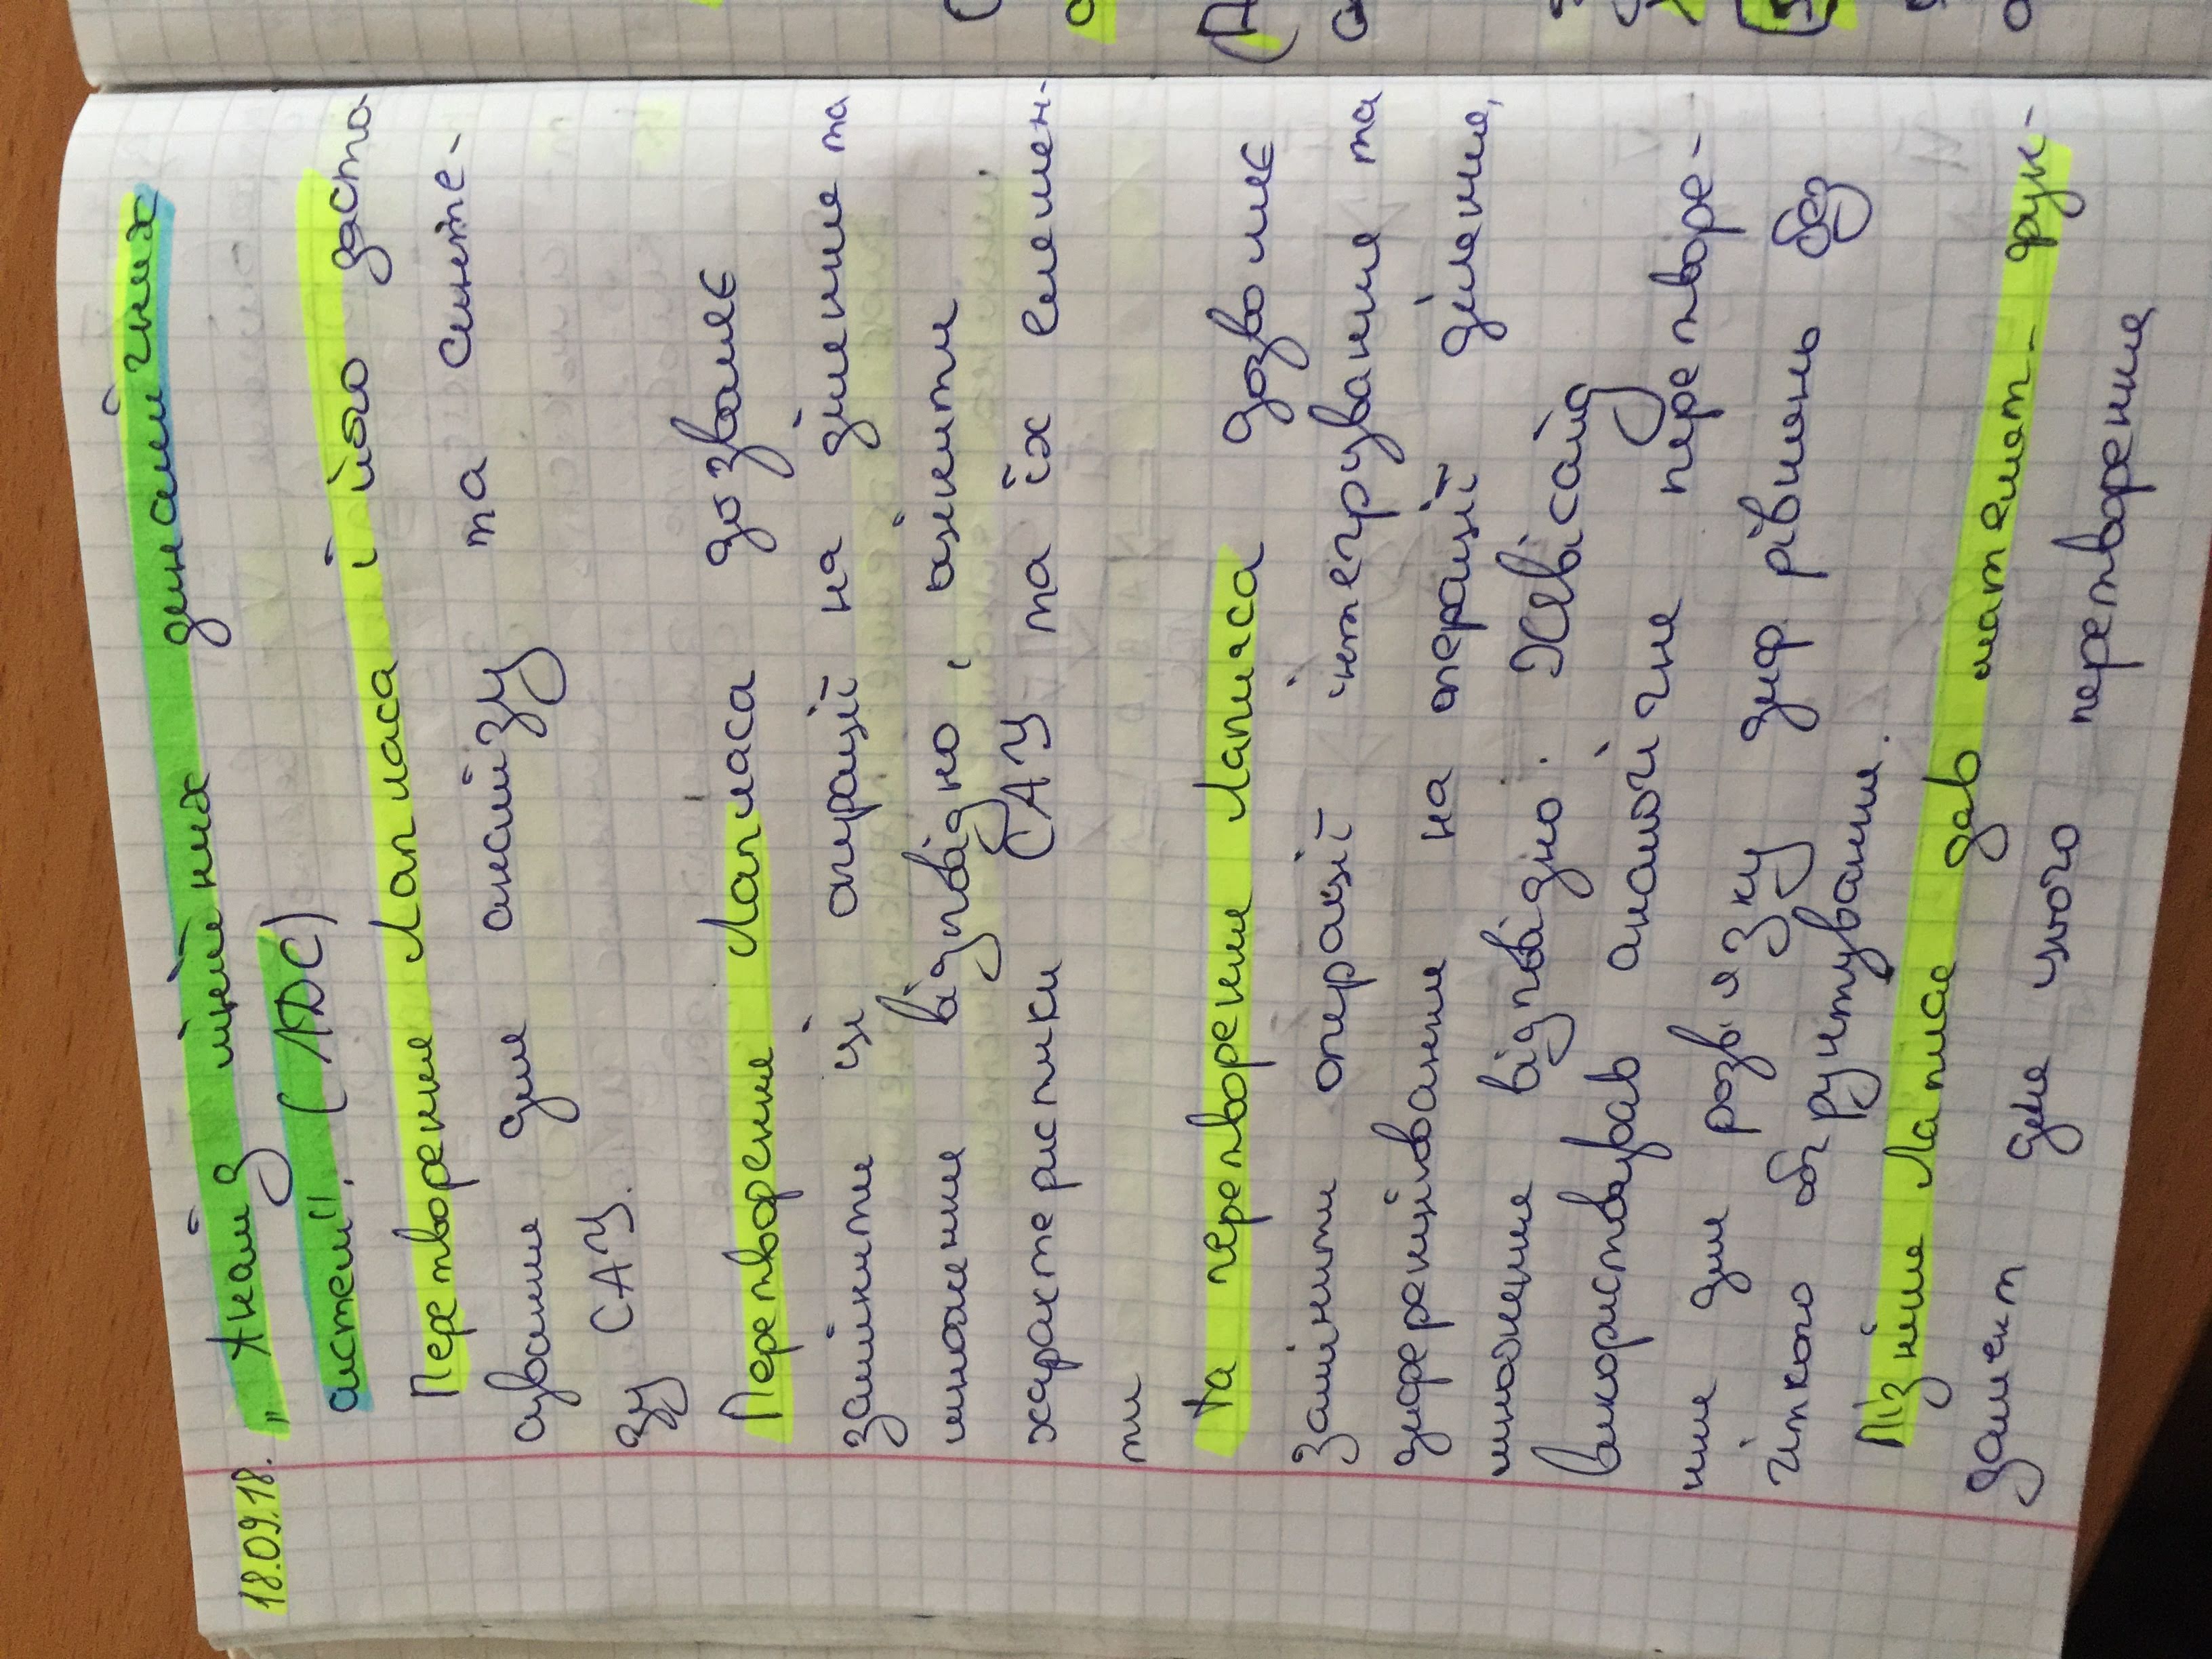 18.09.18. „Аналіз лінійних динамічних
систем". (ЛДС)
Перетворення Лапласа і його засто
сування для аналізу та синте-
зу САУ.
Перетворення Лапласа дозволяє
замінити ці операції на ділення та
множення відповідно, оцінити
характеристики САУ та їх елемен-
ти
Та перетворення Лапласа дозволяє
замінити операції інтегрування та
диференціювання на операції ділення,
множення відповідно. Хевісайд
використовував аналогічне перетворе-
ння для розв'язку диф. рівнянь без
чіткого обгрунтування.
Пізніше Лаплас дав математ. фун-
дамент для цього перетворення